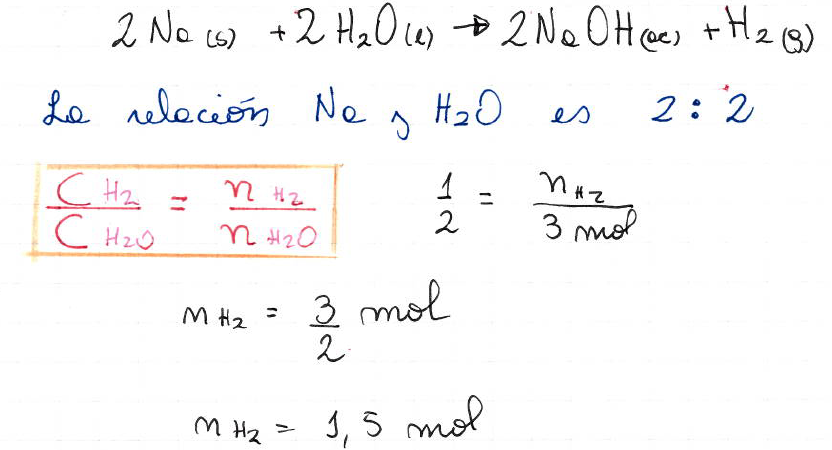 2 Na (s) + 2 H2O (l) → 2 NaOH (ac) + H2 (g)
La relación Na y H2O es 2 : 2
C H2 / C H2O = n H2 / n H2O    1/2 = n H2 / 3 mol
n H2 = 3/2 mol
n H2 = 1,5 mol